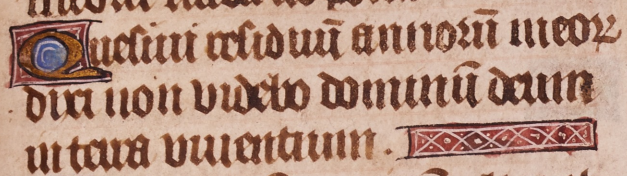 Quesiui residuũ annorũ meoꝝ
dixi non videbo dominũ deum
in terra viuentium.